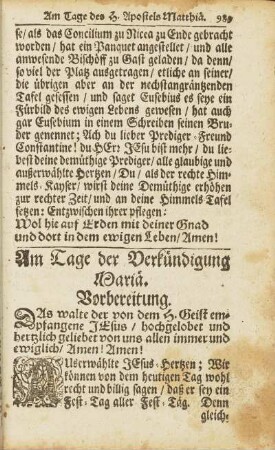 Am Tage des H. Apostels Matthiä.
se/ als das Concilium zu Nicea zu Ende gebracht
worden/ hat ein Panquet angestellet/ und alle
anwesende Bischöff zu Gast geladen/ da denn/
so viel der Platz ausgetragen/ etliche an seiner/
die übrigen aber an der nechstangräntzenden
Tafel gesessen/ und saget Eusebius es seye ein
Fürbild des ewigen Lebens gewesen/ hat auch
gar Eusebium in einem Schreiben seinen Bru-
der genennet; Ach du lieber Prediger-Freund
Constantine! du HErr JEsu bist mehr/ du lie-
best deine demüthige Prediger/ alle glaubige und
außerwählte Hertzen/ Du/ als der rechte Him-
mels-Kayser/ wirst deine Demüthige erhöhen
zur rechter Zeit/ und an deine Himmels Tafel
setzen: Entzwischen ihrer pflegen:
Wol hie auf Erden mit deiner Gnad
und dort in dem ewigen Leben/ Amen!
Am Tage der Verkündigung
Mariä.
Vorbereitung.
DAs walte der von dem H. Geist em-
pfangene JEsus/ hochgelobet und
hertzlich geliebet von uns allen immer und
ewiglich/ Amen! Amen!
AUserwählte JEsus-Hertzen; Wir
können von dem heutigen Tag wohl
recht und billig sagen/ daß er sey ein
Fest-Tag aller Fest-Täg. Denn
gleich-